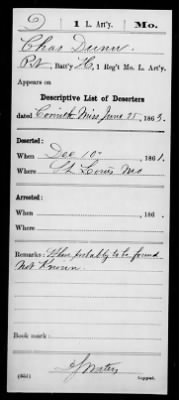 D
1 L. Art'y. Mo.
Chas Dunn
Pvt, Batt'y H, 1 Reg't Mo. L. Art'y.
Appears on
Descriptive List of Deserters
dated Corinth Miss June 25, 1863.
Deserted:
When Dec 10, 1861.
Where St Louis Mo
Arrested:
When , 186 .
Where
Remarks: Where probably to be found
Not Known.
Book mark:
Copyist.